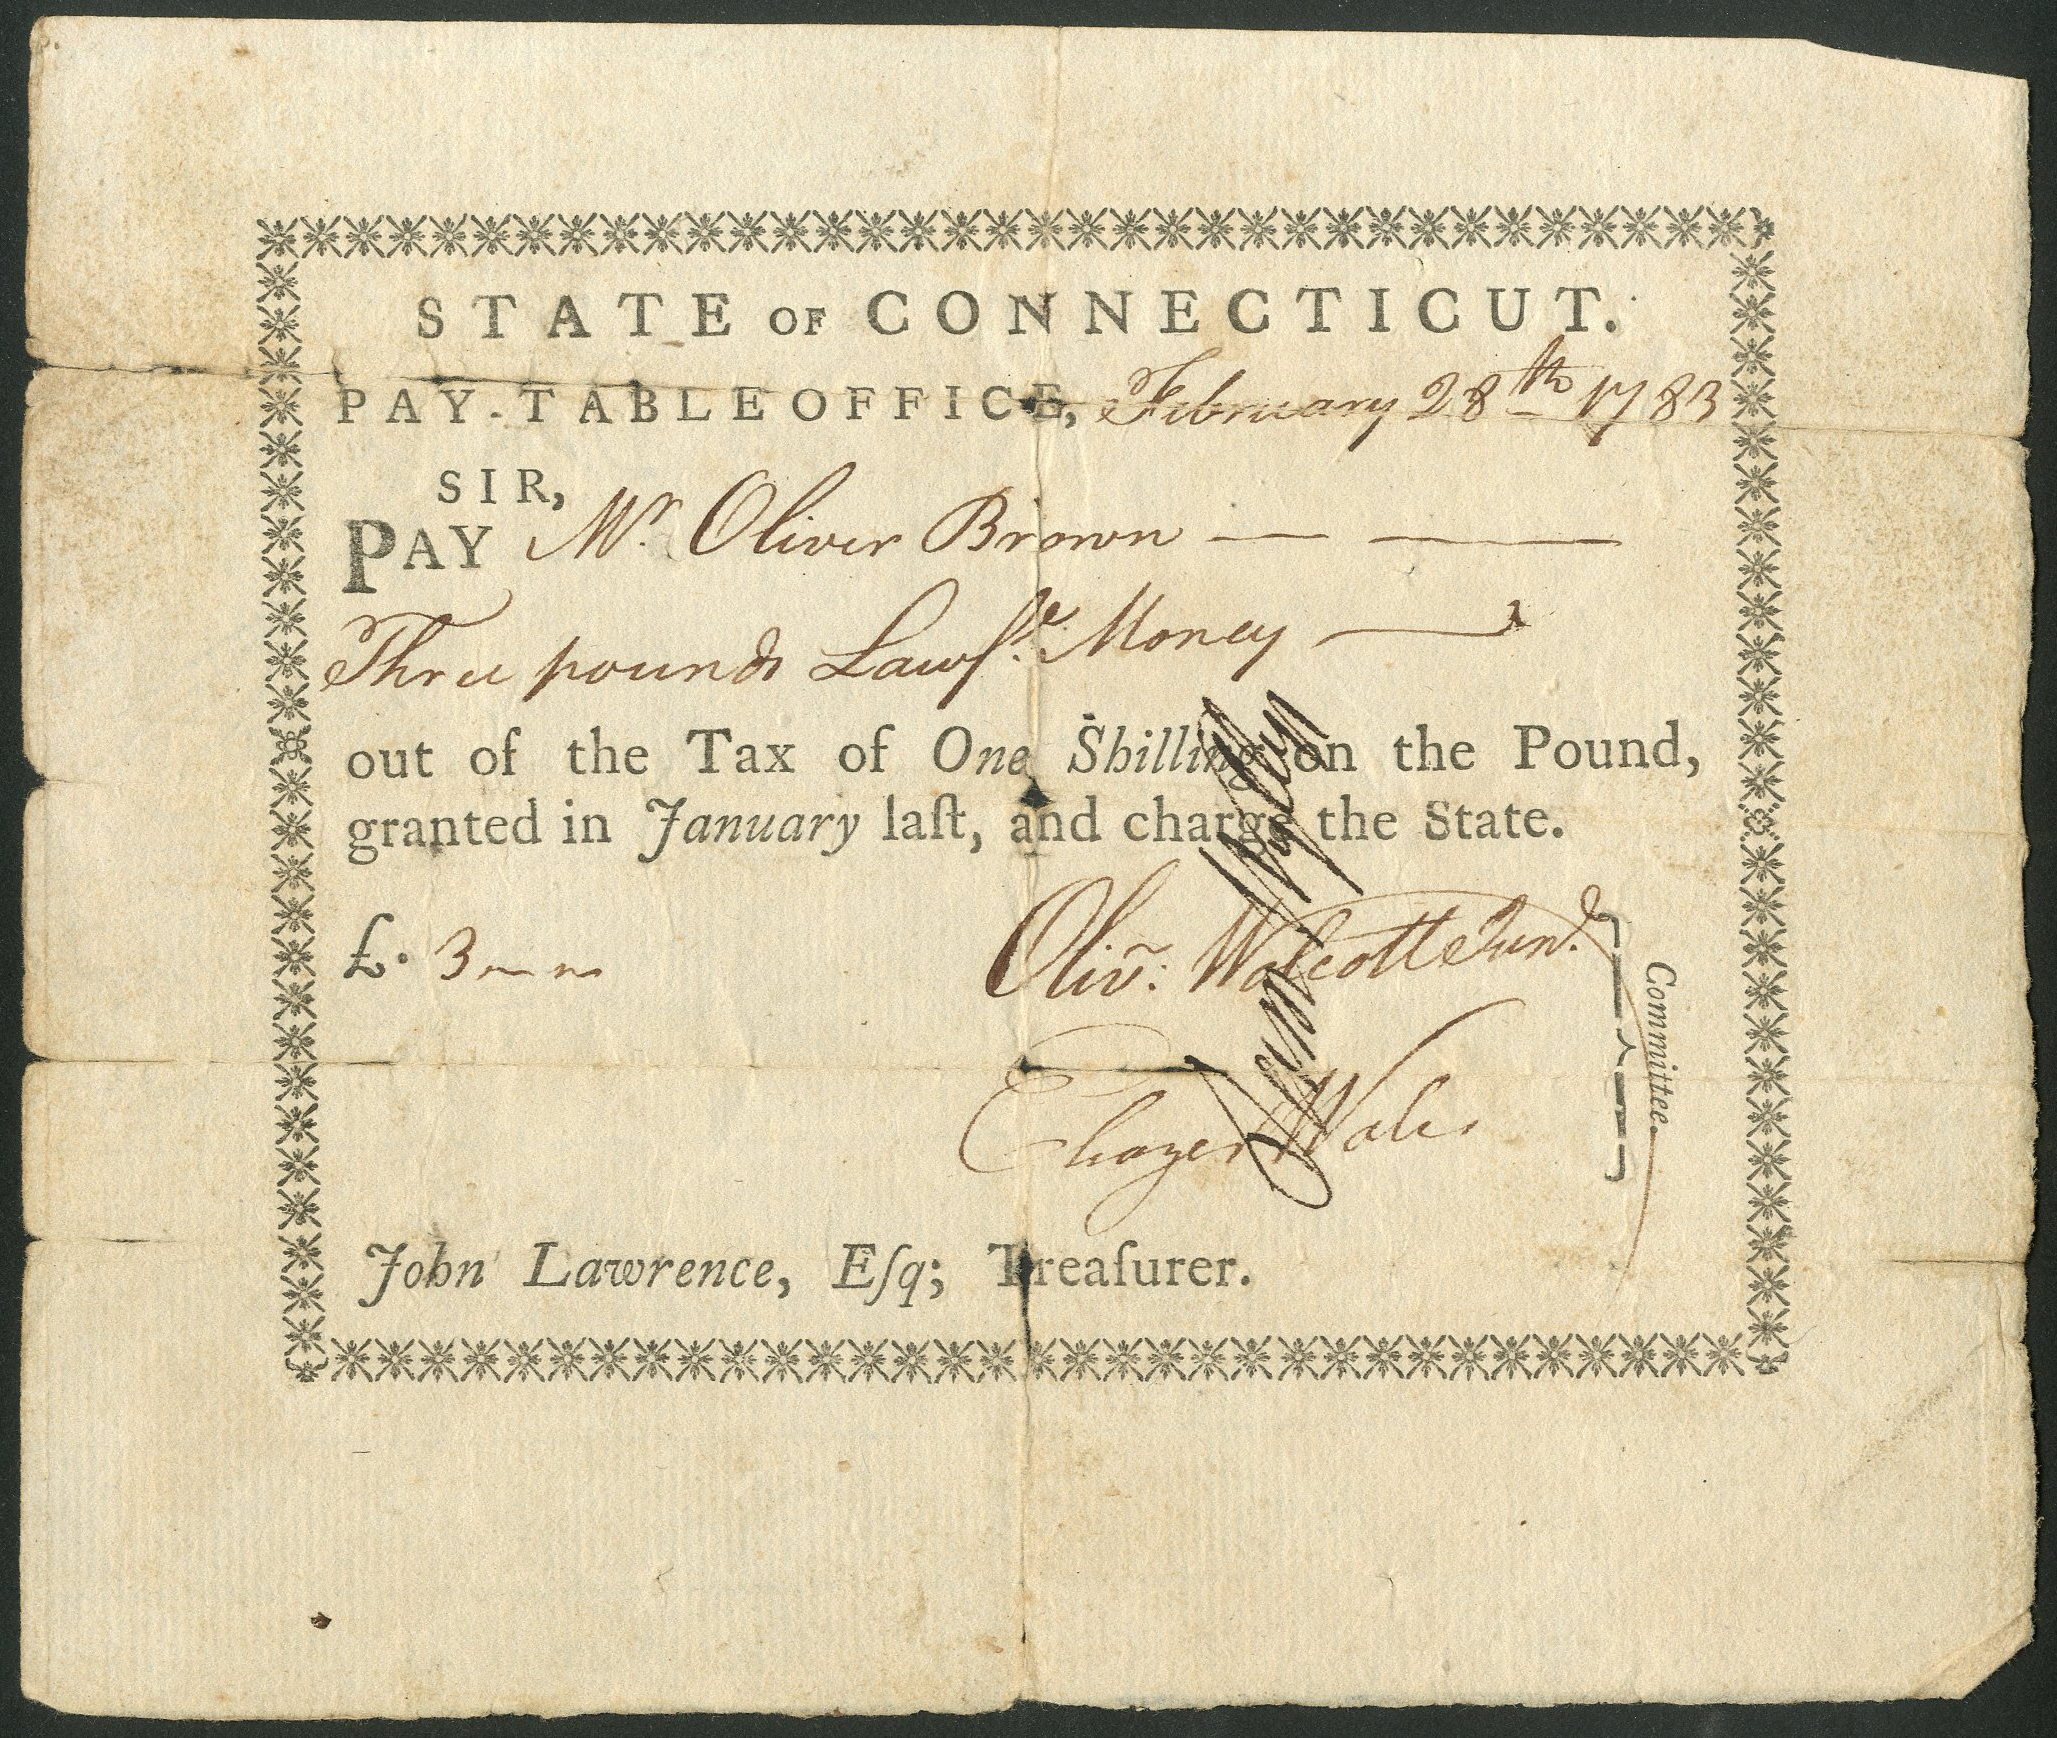 STATE OF CONNECTICUT.
PAY-TABLE OFFICE, February 28th 1783
SIR,
PAY Mr. Oliver Brown
Three pounds Lawfl. Money
out of the Tax of One Shilling on the Pound,
granted in January laſt, and charge the State.
£. 3
Olivr. Wolcott Junr.
Eleazer Wales
Committee.
John Lawrence, Eſq; Treaſurer.